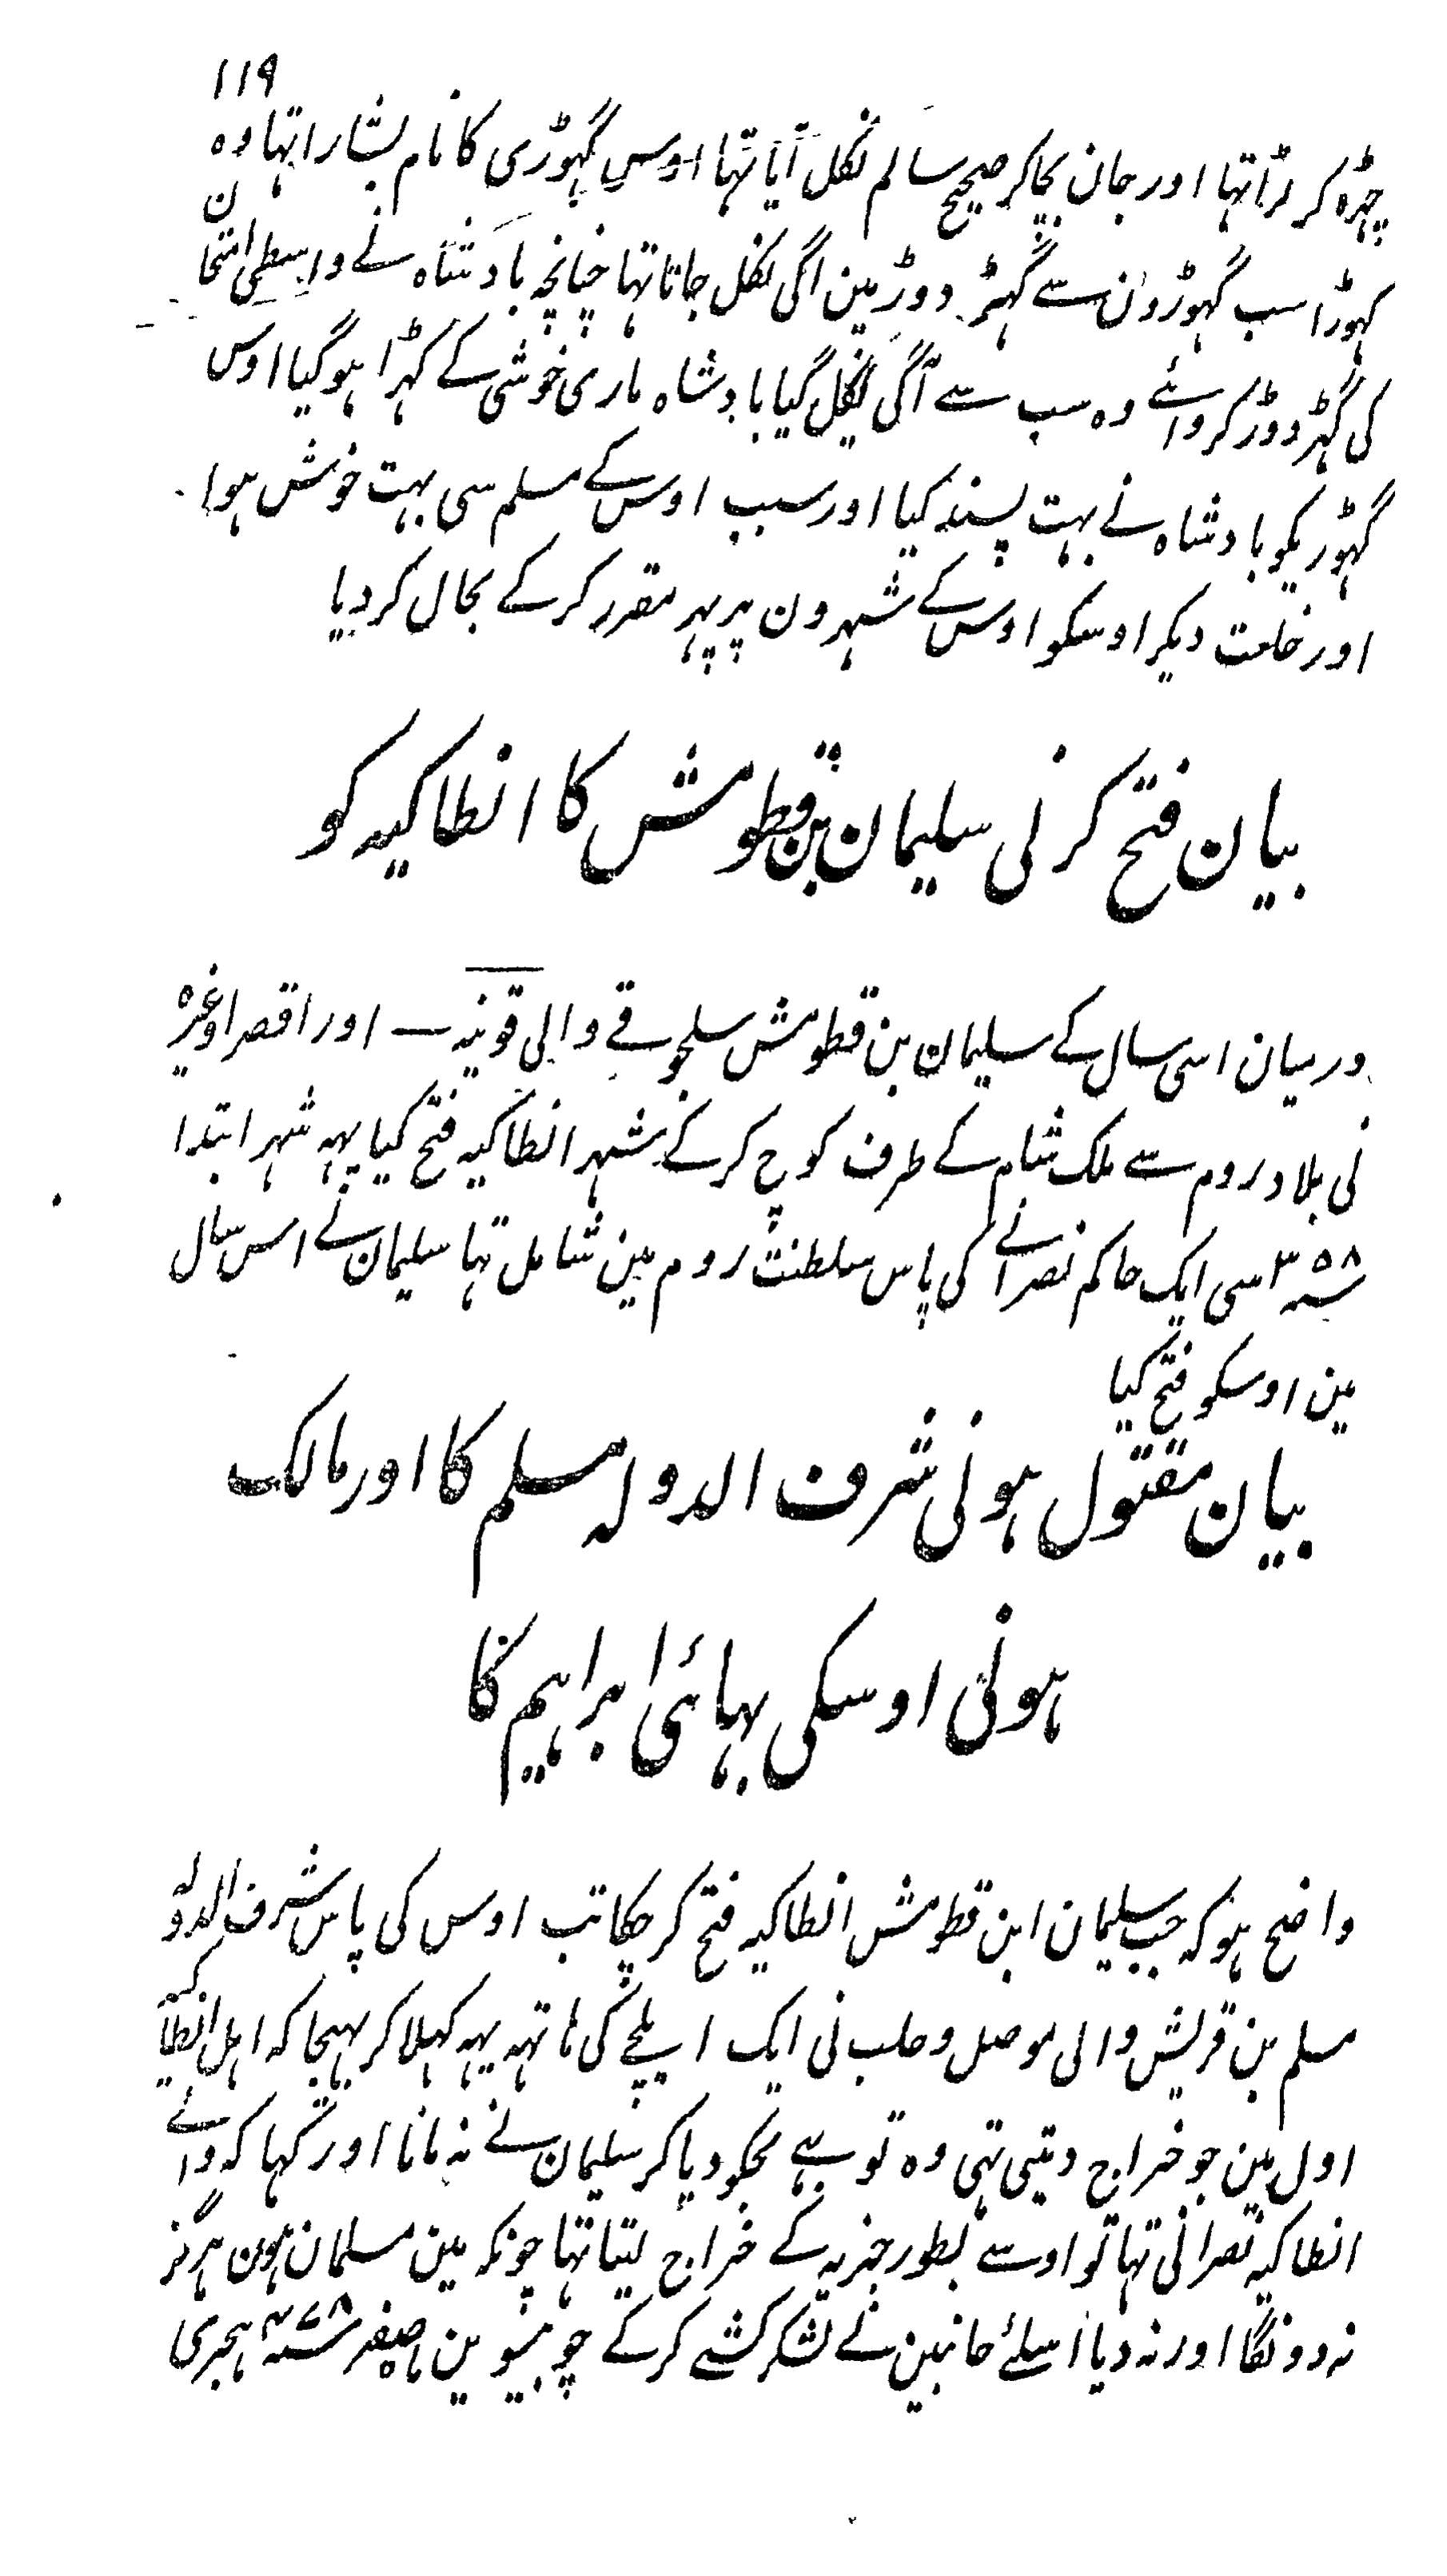 ۱۱۹
چڑہ کر لڑا تہا اور جان بچا کر صحیح سالم نکل آیا تہا اوس گہوڑی کا نام بشارا تہا وہ
گہوڑا سب گہوڑون سے گہڑ دوڑ مین اگی نکل جاتا تہا چنانچہ بادشاہ نے واسطی امتحان
کی گہڑ دوڑ کروائے وہ سب سے آگی نکل گیا بادشاہ ماری خوشی کے کہڑا ہو گیا اوس
گہوڑیکو بادشاہ نے بہت پسند کیا اور سبب اوس کے مسلم سی بہت خوش ہوا
اور خلعت دیکر اوسکو اوس کے شہرون پر پہر مقرر کر کے بحال کر دیا
بیان فتح کرنی سلیمان بن قطومش کا انطاکیہ کو
درمیان اسی سال کے سلیمان بن قطومش سلجوقے والی قونیہ — اور اقصرا وغیرہ
نی بلاد روم سے ملک شام کے طرف کوچ کر کے شہر انطاکیہ فتح کیا یہہ شہر ابتدا
سنہ ۳۵۸ سی ایک حاکم نصرانے کی پاس سلطنت روم مین شامل تہا سلیمان نے اس سال
مین اوسکو فتح کیا
بیان مقتول ہونی شرف الدولہ مسلم کا اور مالک
ہونی اوسکی بہائی ابراہیم کا
واضح ہو کہ جب سلیمان ابن قطومش انطاکیہ فتح کر چکا تب اوس کی پاس شرف الدولہ
مسلم بن قریش والی موصل و حلب نی ایک ایلچے کی ہاتہہ یہہ کہلا کر بہیجا کہ اہل انطاکیہ
اول مین جو خراج دیتی تہی وہ تو بہے مجکو دیا کر سلیمان نے نہ مانا اور کہا کہ والے
انطاکیہ نصرانی تہا تو اوسے بطور جزیہ کے خراج لیتا تہا چونکہ مین مسلمان ہون ہرگز
نہ دونگا اور نہ دیا اسلئے جانبین نے لشکر کشے کر کے چوبیسوین ماہ صفر سنہ ۴۷۸ ہجری